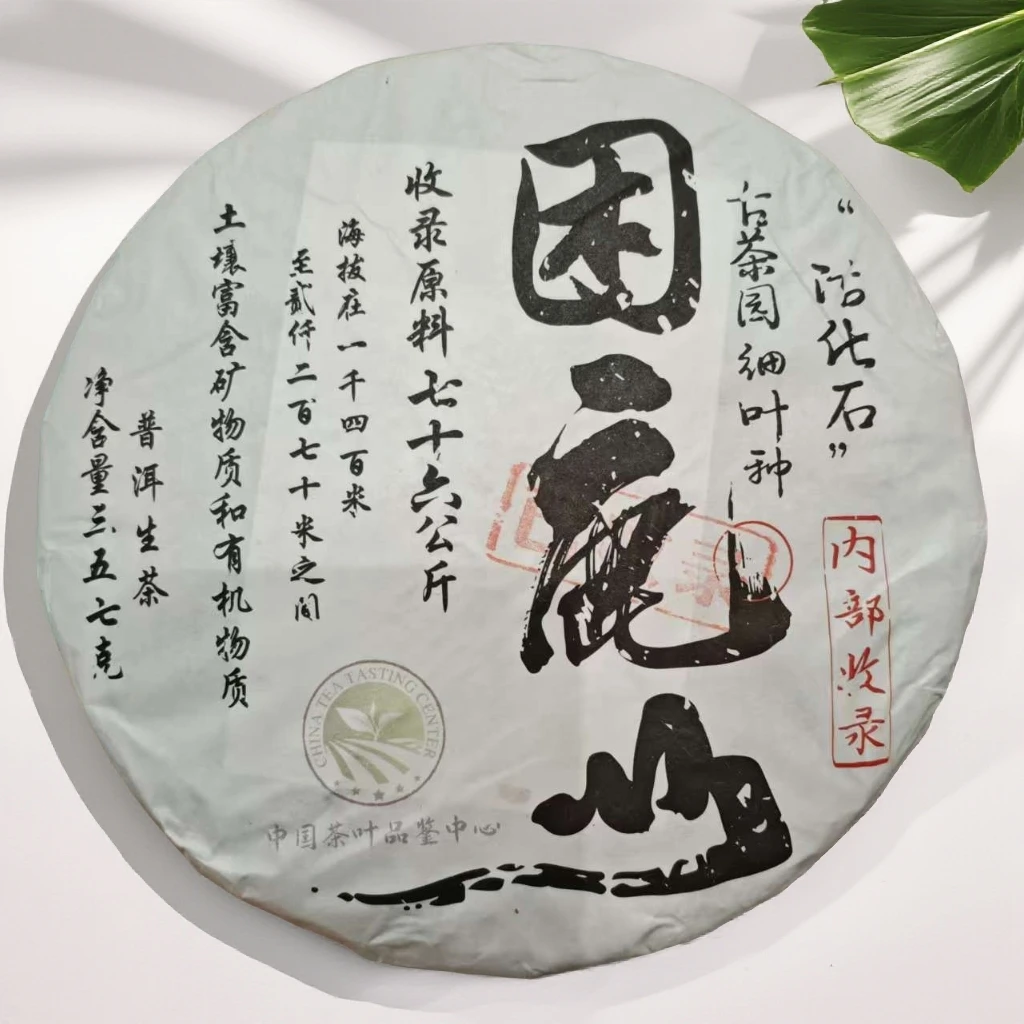 “活化石”
古茶园细叶种
内部收录
困鹿山
收录原料七十六公斤
海拔在一千四百米
至贰仟二百七十米之间
土壤富含矿物质和有机物质
普洱生茶
净含量三五七克
CHINA TEA TASTING CENTER
中国茶叶品鉴中心